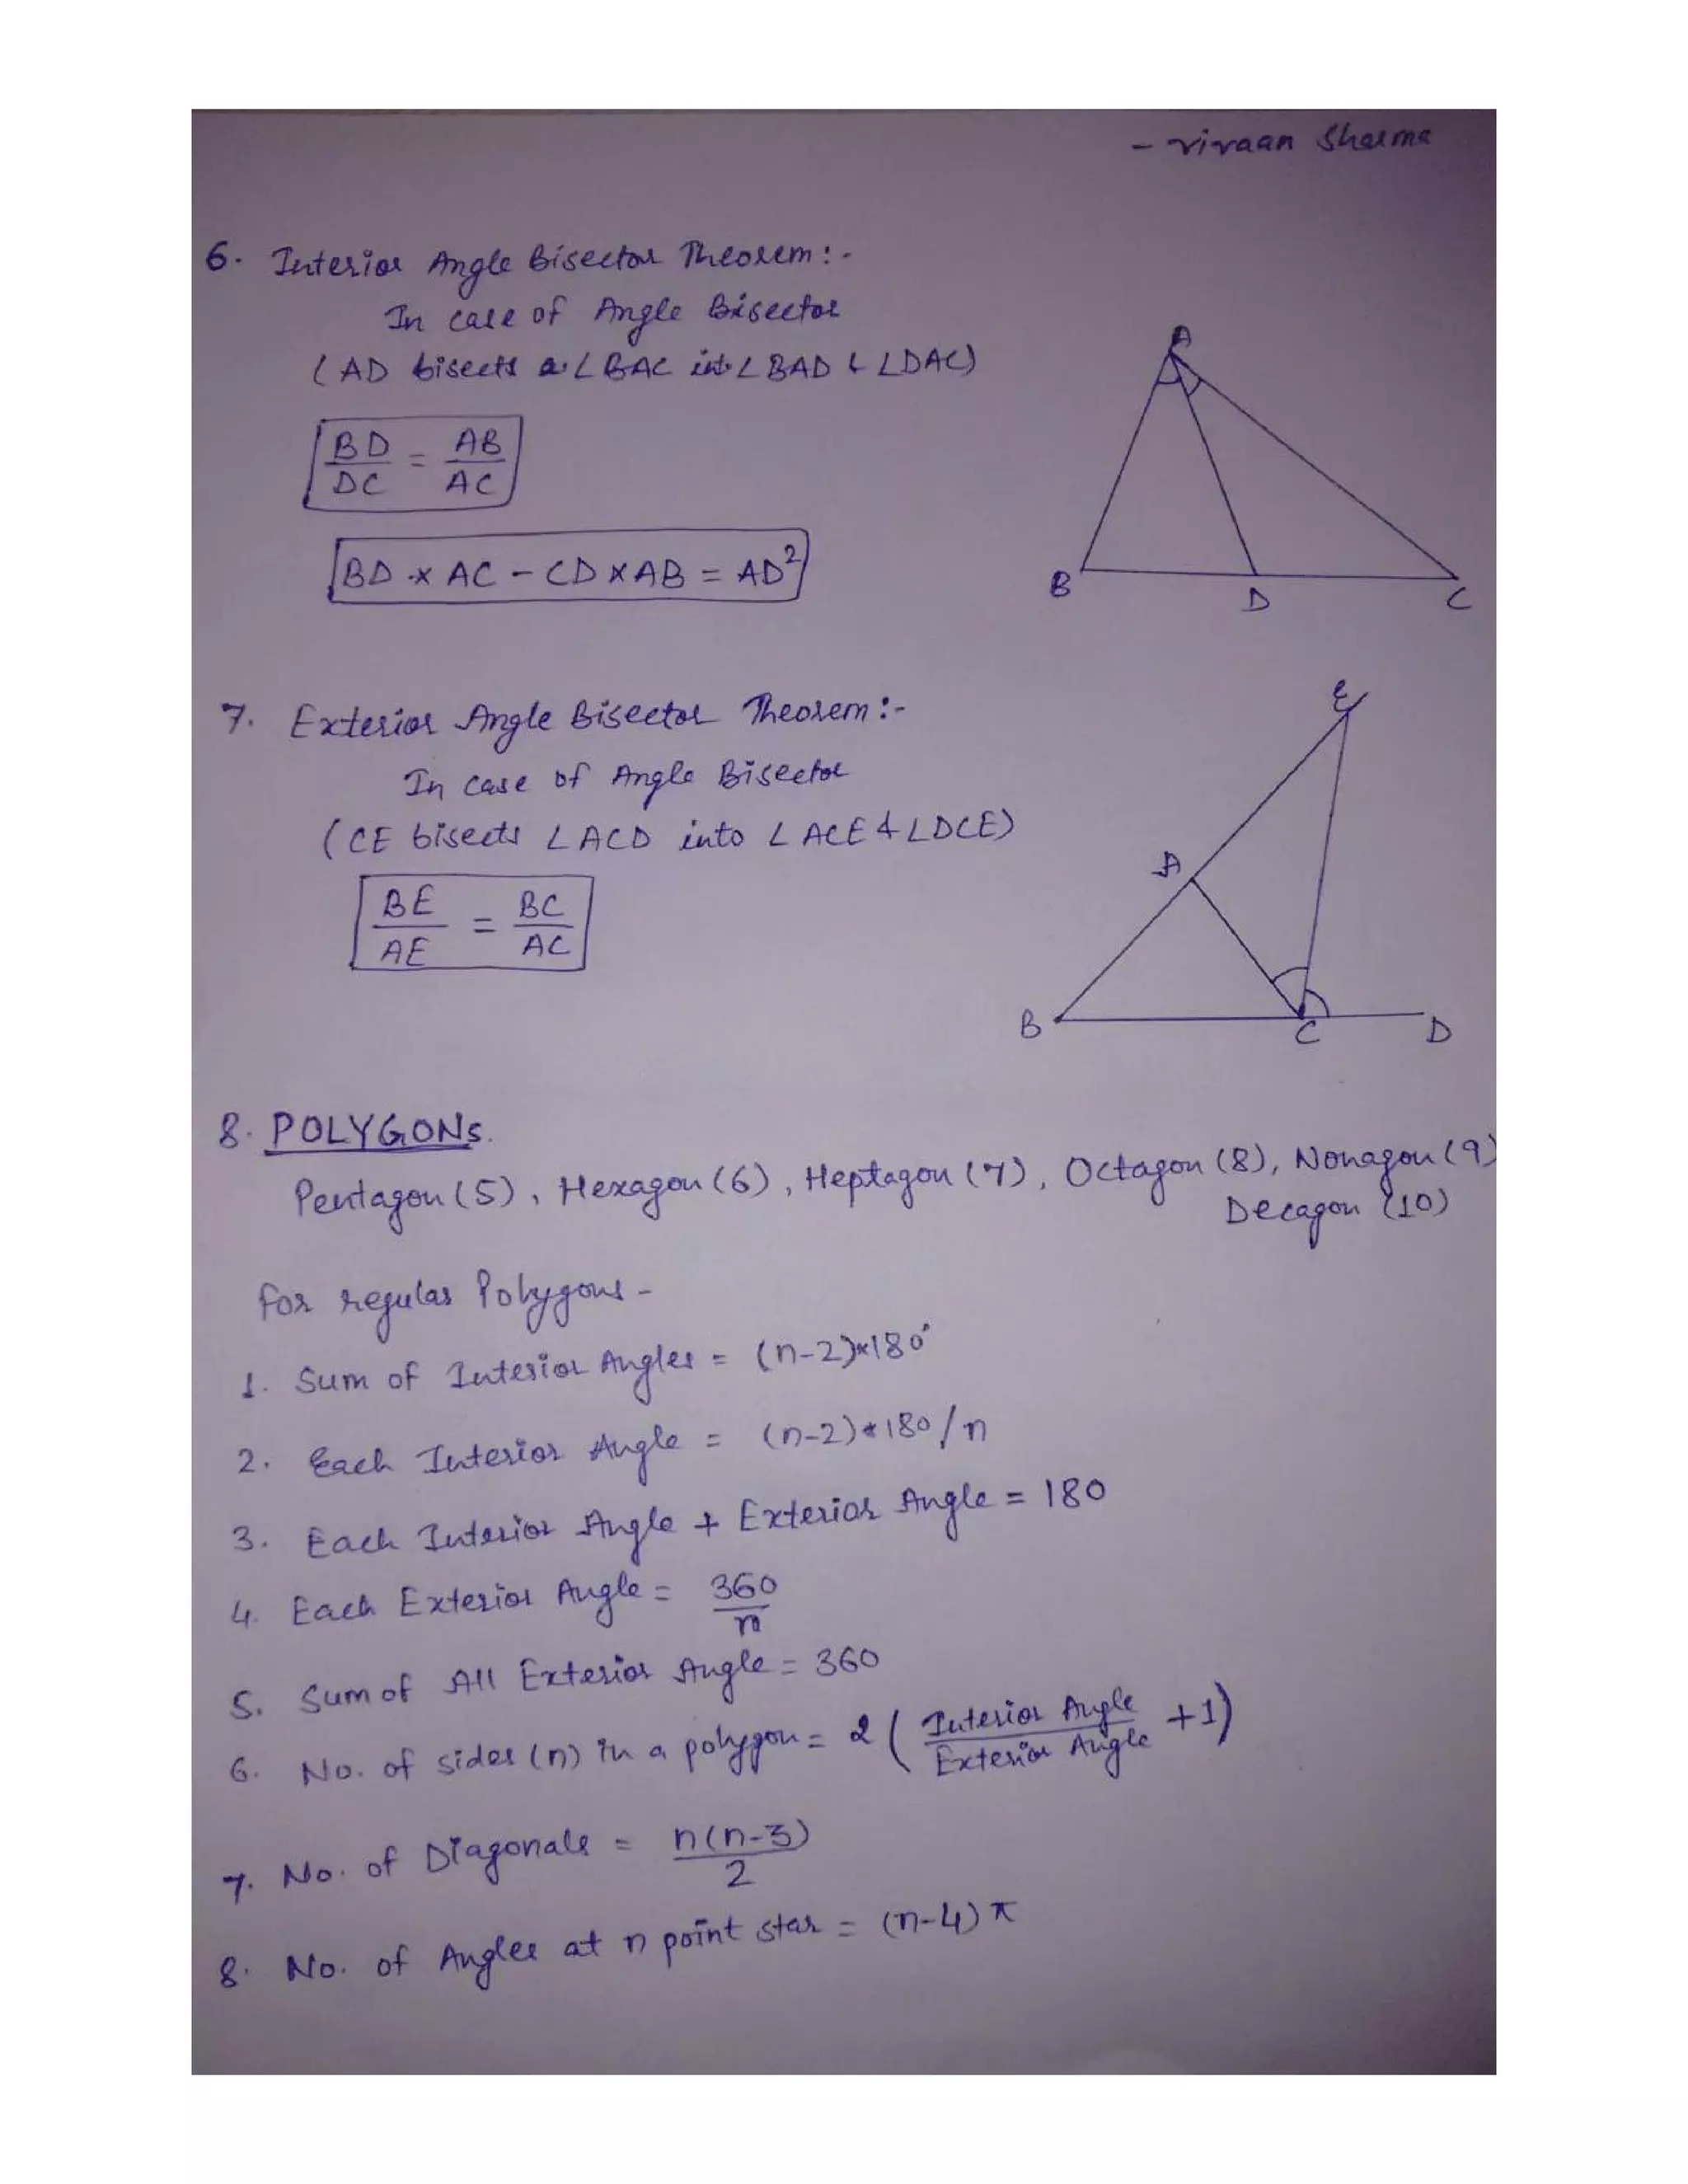 - vivaan Sharma
6. Interior Angle Bisector Theorem :-
In case of Angle Bisector
(AD bisects ∠BAC into ∠BAD & ∠DAC)
BD/DC = AB/AC
BD × AC - CD × AB = AD²
A
B
D
C
7. Exterior Angle Bisector Theorem :-
In case of Angle Bisector
(CE bisects ∠ACD into ∠ACE & ∠DCE)
BE/AE = BC/AC
E
A
B
C
D
8. POLYGONs.
Pentagon (5), Hexagon (6), Heptagon (7), Octagon (8), Nonagon (9)
Decagon (10)
For regular Polygons -
1. Sum of Interior Angles = (n-2)*180°
2. Each Interior Angle = (n-2)*180/n
3. Each Interior Angle + Exterior Angle = 180
4. Each Exterior Angle = 360/n
5. Sum of All Exterior Angle = 360
6. No. of sides (n) in a polygon = 2 (Interior Angle/Exterior Angle + 1)
7. No. of Diagonals = n(n-3)/2
8. No. of Angles at n point star = (n-4) π